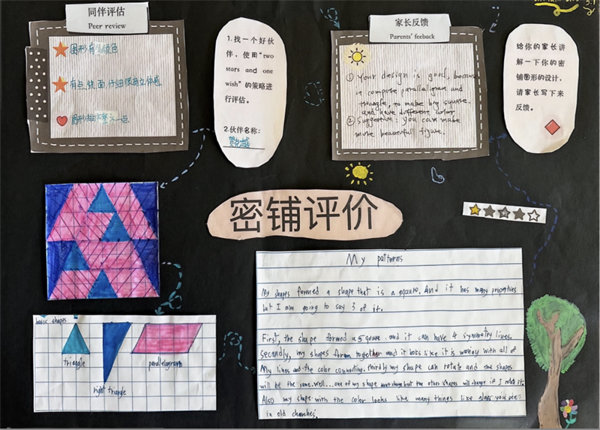 同伴评估
Peer review
图形有 颜色
有点、线、面,仔细 立体感
图形
1.找一个好伙
伴,使用"two
stars and one
wish"的策略进
行评估。
2.伙伴名称:
家长反馈
Parents' feeback
① Your design is good, because
it compose parallelograms and
triangle, to make big square.
and have different color
② Suggestion: you can make
more beautiful figure.
给你的家长讲
解一下你的密
铺图形的设计,
请家长写下来
反馈。
密铺评价
basic shapes
triangle
right triangle
parallelogram
My patterns
My shapes formed a shape that is a square. And it has many properties
but I am going to say 3 of it.
First, the shape formed a square and it can have 4 symmetry lines.
Secondly, my shapes from together and it looks like it is working with all of
My lines and the color cowriting. thirdly my shape can rotate and the shapes
will be the same. well... one of my shape but the other shapes will change if I rotate it.
Also my shape with the color looks like many things like
in old churches.